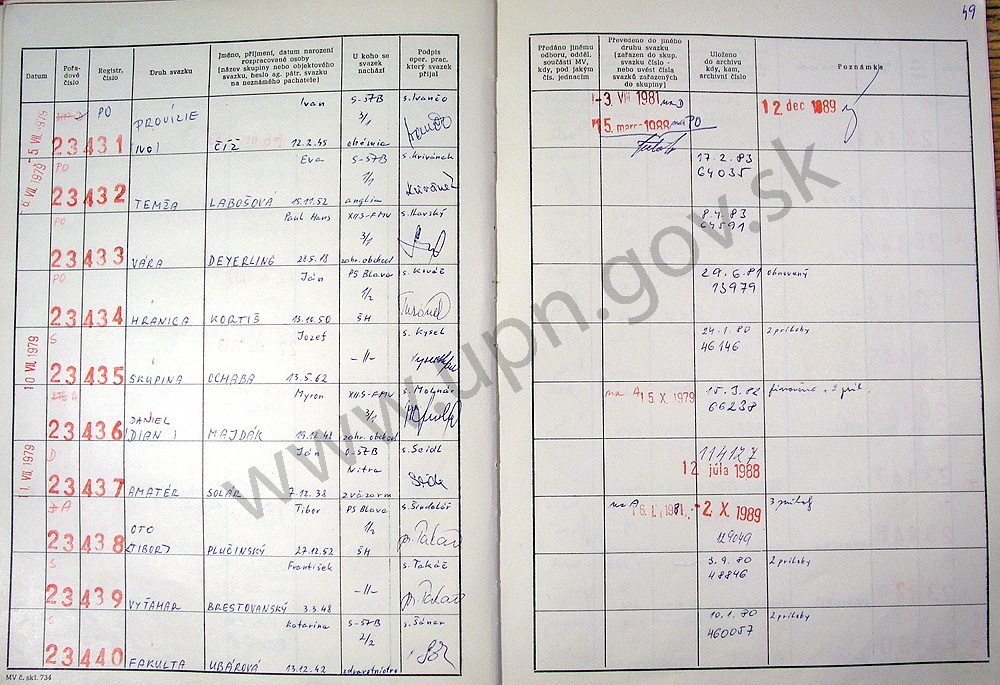 49
Datum
Pořa-
dové
číslo
Registr.
číslo
Druh svazku
Jméno, příjmení, datum narození
rozpracované osoby
(název skupiny nebo objektového
svazku, heslo ag. pátr. svazku
na neznámého pachatele)
U koho se
svazek
nachází
Podpis
oper. prac.
který svazek
přijal
Předáno jinému
odboru, odděl.
součásti MV,
kdy, pod jakým
čís. jednacím
Převedeno do jiného
druhu svazku
(zařazen do skup.
svazku číslo -
nebo uvést čísla
svazků zařazených
do skupiny)
Uloženo
do archivu
kdy, kam,
archivní číslo
Poznámka
5. VII. 1979
PO
23431
PROVÍZIE
IVO1
Ivan
ČÍŽ 12.2.45
S-ŠTB
3/1
s. Ivančo
-3. VIII 1981
15. marca 1988 PO
12 dec 1989
6. VII. 1979
PO
23432
TEMŽA
Eva
LABOŠOVÁ 15.11.52
S-ŠTB
1/1
s. Krivánek
17.2.83
64035
PO
23433
VÁRA
Paul Hans
DEYERLING
XIIS-FMV
3/1
zahr. obchod
8.4.83
64591
PO
23434
HRANICA
Ján
KORTIŠ 13.10.50
PS Blava
1/2
ŠH
s. Kováč
29.6.81
13979
obnovený
10. VII. 1979
S
23435
SKUPINA
Jozef
OCHABA 13.5.62
-II-
s. Kysel
24.1.80
46146
2 prílohy
A
23436
DANIEL
DIAN 1
Myron
MAJDÁK 19.12.48
XIIS-FMV
3/1
zahr. obchod
s. Molnár
na A 15 X 1979
15.3.82
66238
11. VII. 1979
D
23437
AMATÉR
Ján
SOLÁR 7.12.38
Nitra
s. Seidl
114127
12 júla 1988
A
23438
OTO
(TIBOR)
Tibor
PLUČINSKÝ 27.12.52
PS Blava
1/2
ŠH
na A
-2. X. 1989
S
23439
VYTAMAR
František
BRESTOVANSKÝ 3.3.48
-II-
s. Takáč
3.9.80
48846
2 prílohy
S
23440
FAKULTA
Katarína
UBÁROVÁ 13.12.42
S-ŠTB
2/2
zdravotníctvo
s. Šáner
10.1.80
460057
2 prílohy
MV č. skl. 734
www.upn.gov.sk